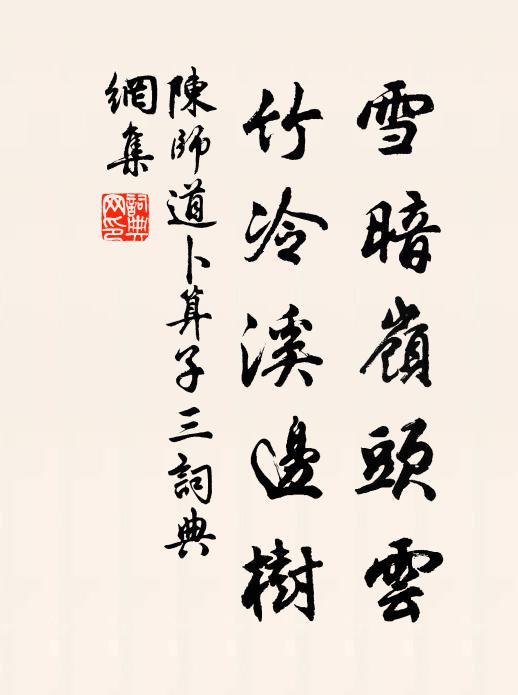 雪暗嶺頭雲
竹冷溪邊樹
陳師道卜算子三詞典
網集
詞典
网印